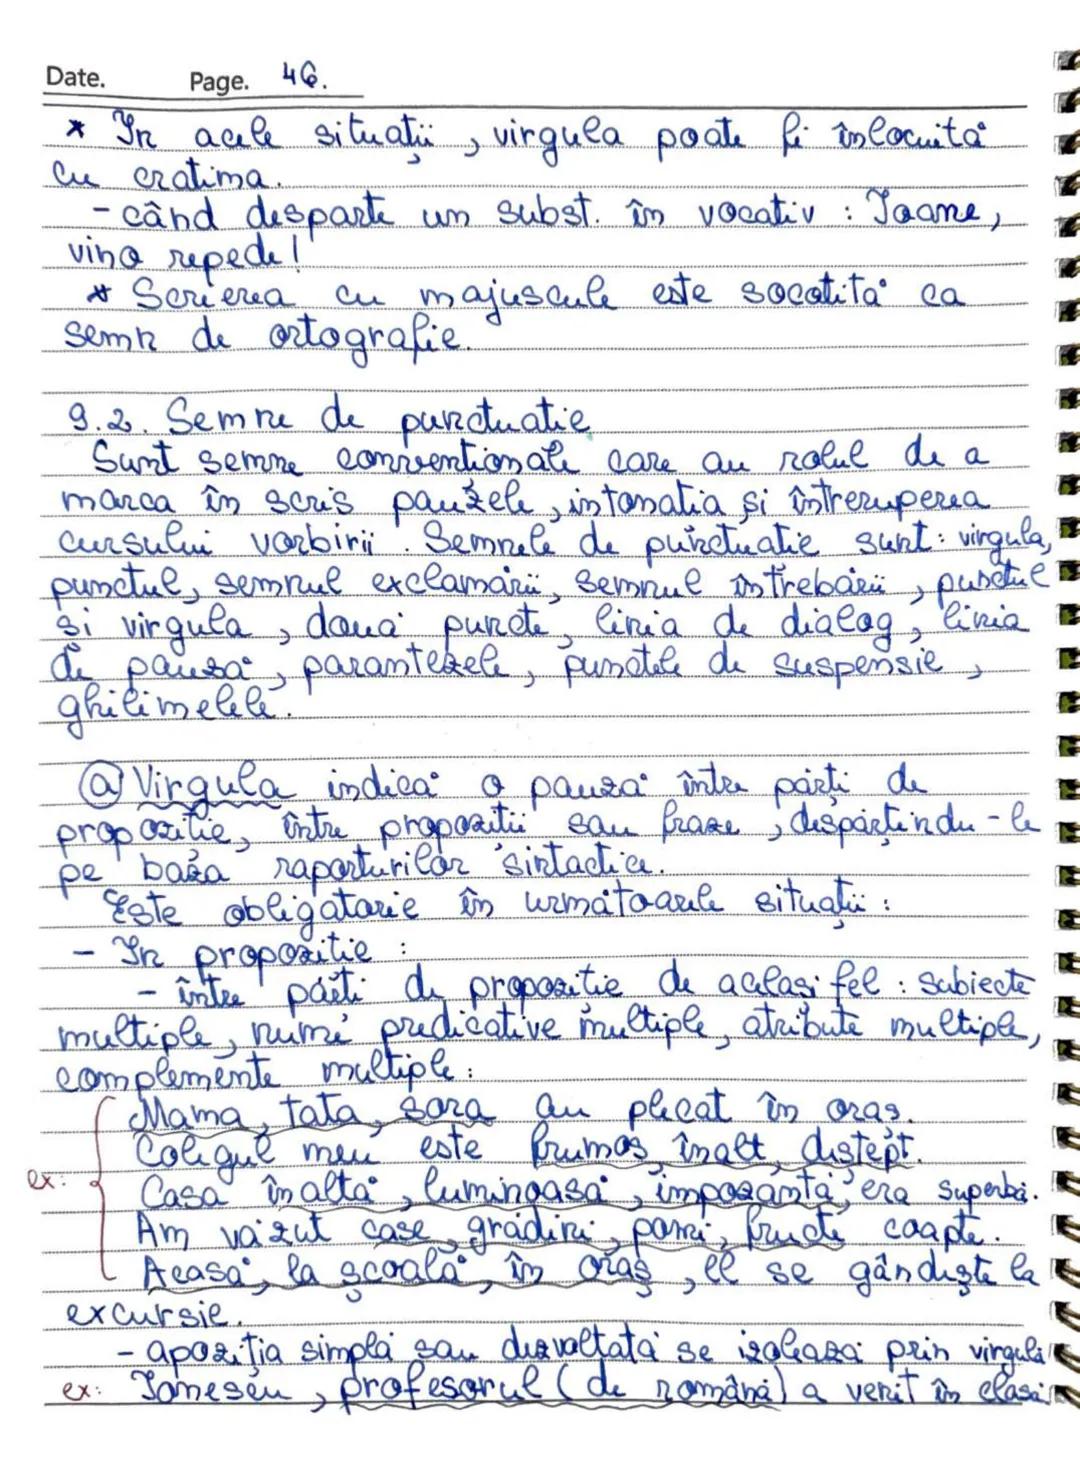 Date. Page. 46.
* În acele situații, virgula poate fi înlocuită
cu cratima.
- când desparte un subst. în vocativ : Ioane,
vino repede!
* Scrierea cu majuscule este socotită ca
semn de ortografie.
9.2. Semne de punctuație
Sunt semne convenționale care au rolul de a
marca în scris pauzele, intonația și întreruperea
cursului vorbirii. Semnele de punctuație sunt: virgula,
punctul, semnul exclamării, semnul întrebării, punctul
și virgula, două puncte, linia de dialog, linia
de pauză, parantezele, punctele de suspensie,
ghilimelele.
ⓐ Virgula indică o pauză între părți de
propoziție, între propoziții sau fraze, despărțindu-le
pe baza raporturilor sintactice.
Este obligatorie în următoarele situații :
- În propoziție :
- între părți de propoziție de același fel : subiecte
multiple, nume predicative multiple, atribute multiple,
complemente multiple :
Mama, tata, sora au plecat în oraș.
Colegul meu este frumos, înalt, deștept.
ex: Casa înaltă, luminoasă, impozantă, era superbă.
Am văzut case, grădini, pomi, fructe coapte.
Acasă, la școală, în oraș, el se gândește la
excursie.
- apoziția simplă sau dezvoltată se izolează prin virgulă
ex: Ionescu, profesorul (de română) a venit în clasă